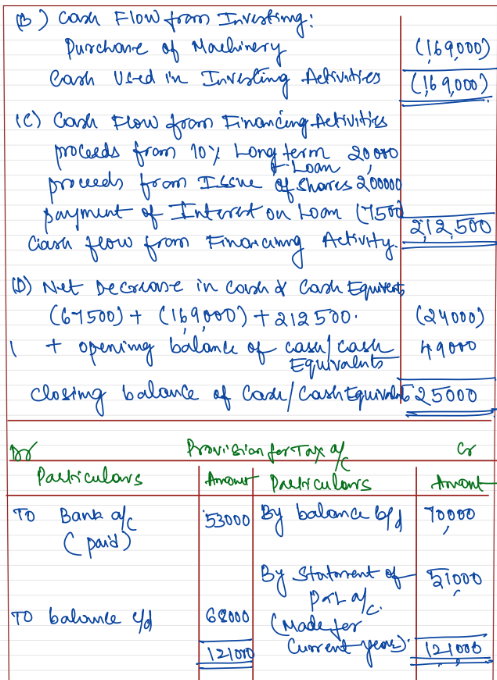 (B) Cash Flow from Investing:
Purchase of Machinery (1,69,000)
Cash Used in Investing Activities (1,69,000)
(C) Cash Flow from Financing Activities
proceeds from 10% Long term & Loan 20,000
proceeds from Issue of Shares 200000
payment of Interest on Loan (7500)
Cash flow from Financing Activity. 2,12,500
(D) Net Decrease in cash & Cash Equivents
(67500) + (1,69,000) + 212500. (24000)
+ opening balance of cash/cash Equivalents 49000
closing balance of Cash/Cash Equivalent 25000
Dr Provision for Tax a/c Cr
Particulars Amount Particulars Amount
To Bank a/c 53000 By balance b/d 70,000
(paid)
By Statement of 51000
P&L a/c.
To balance c/d 68000 (Made for
121000 Current years). 121000